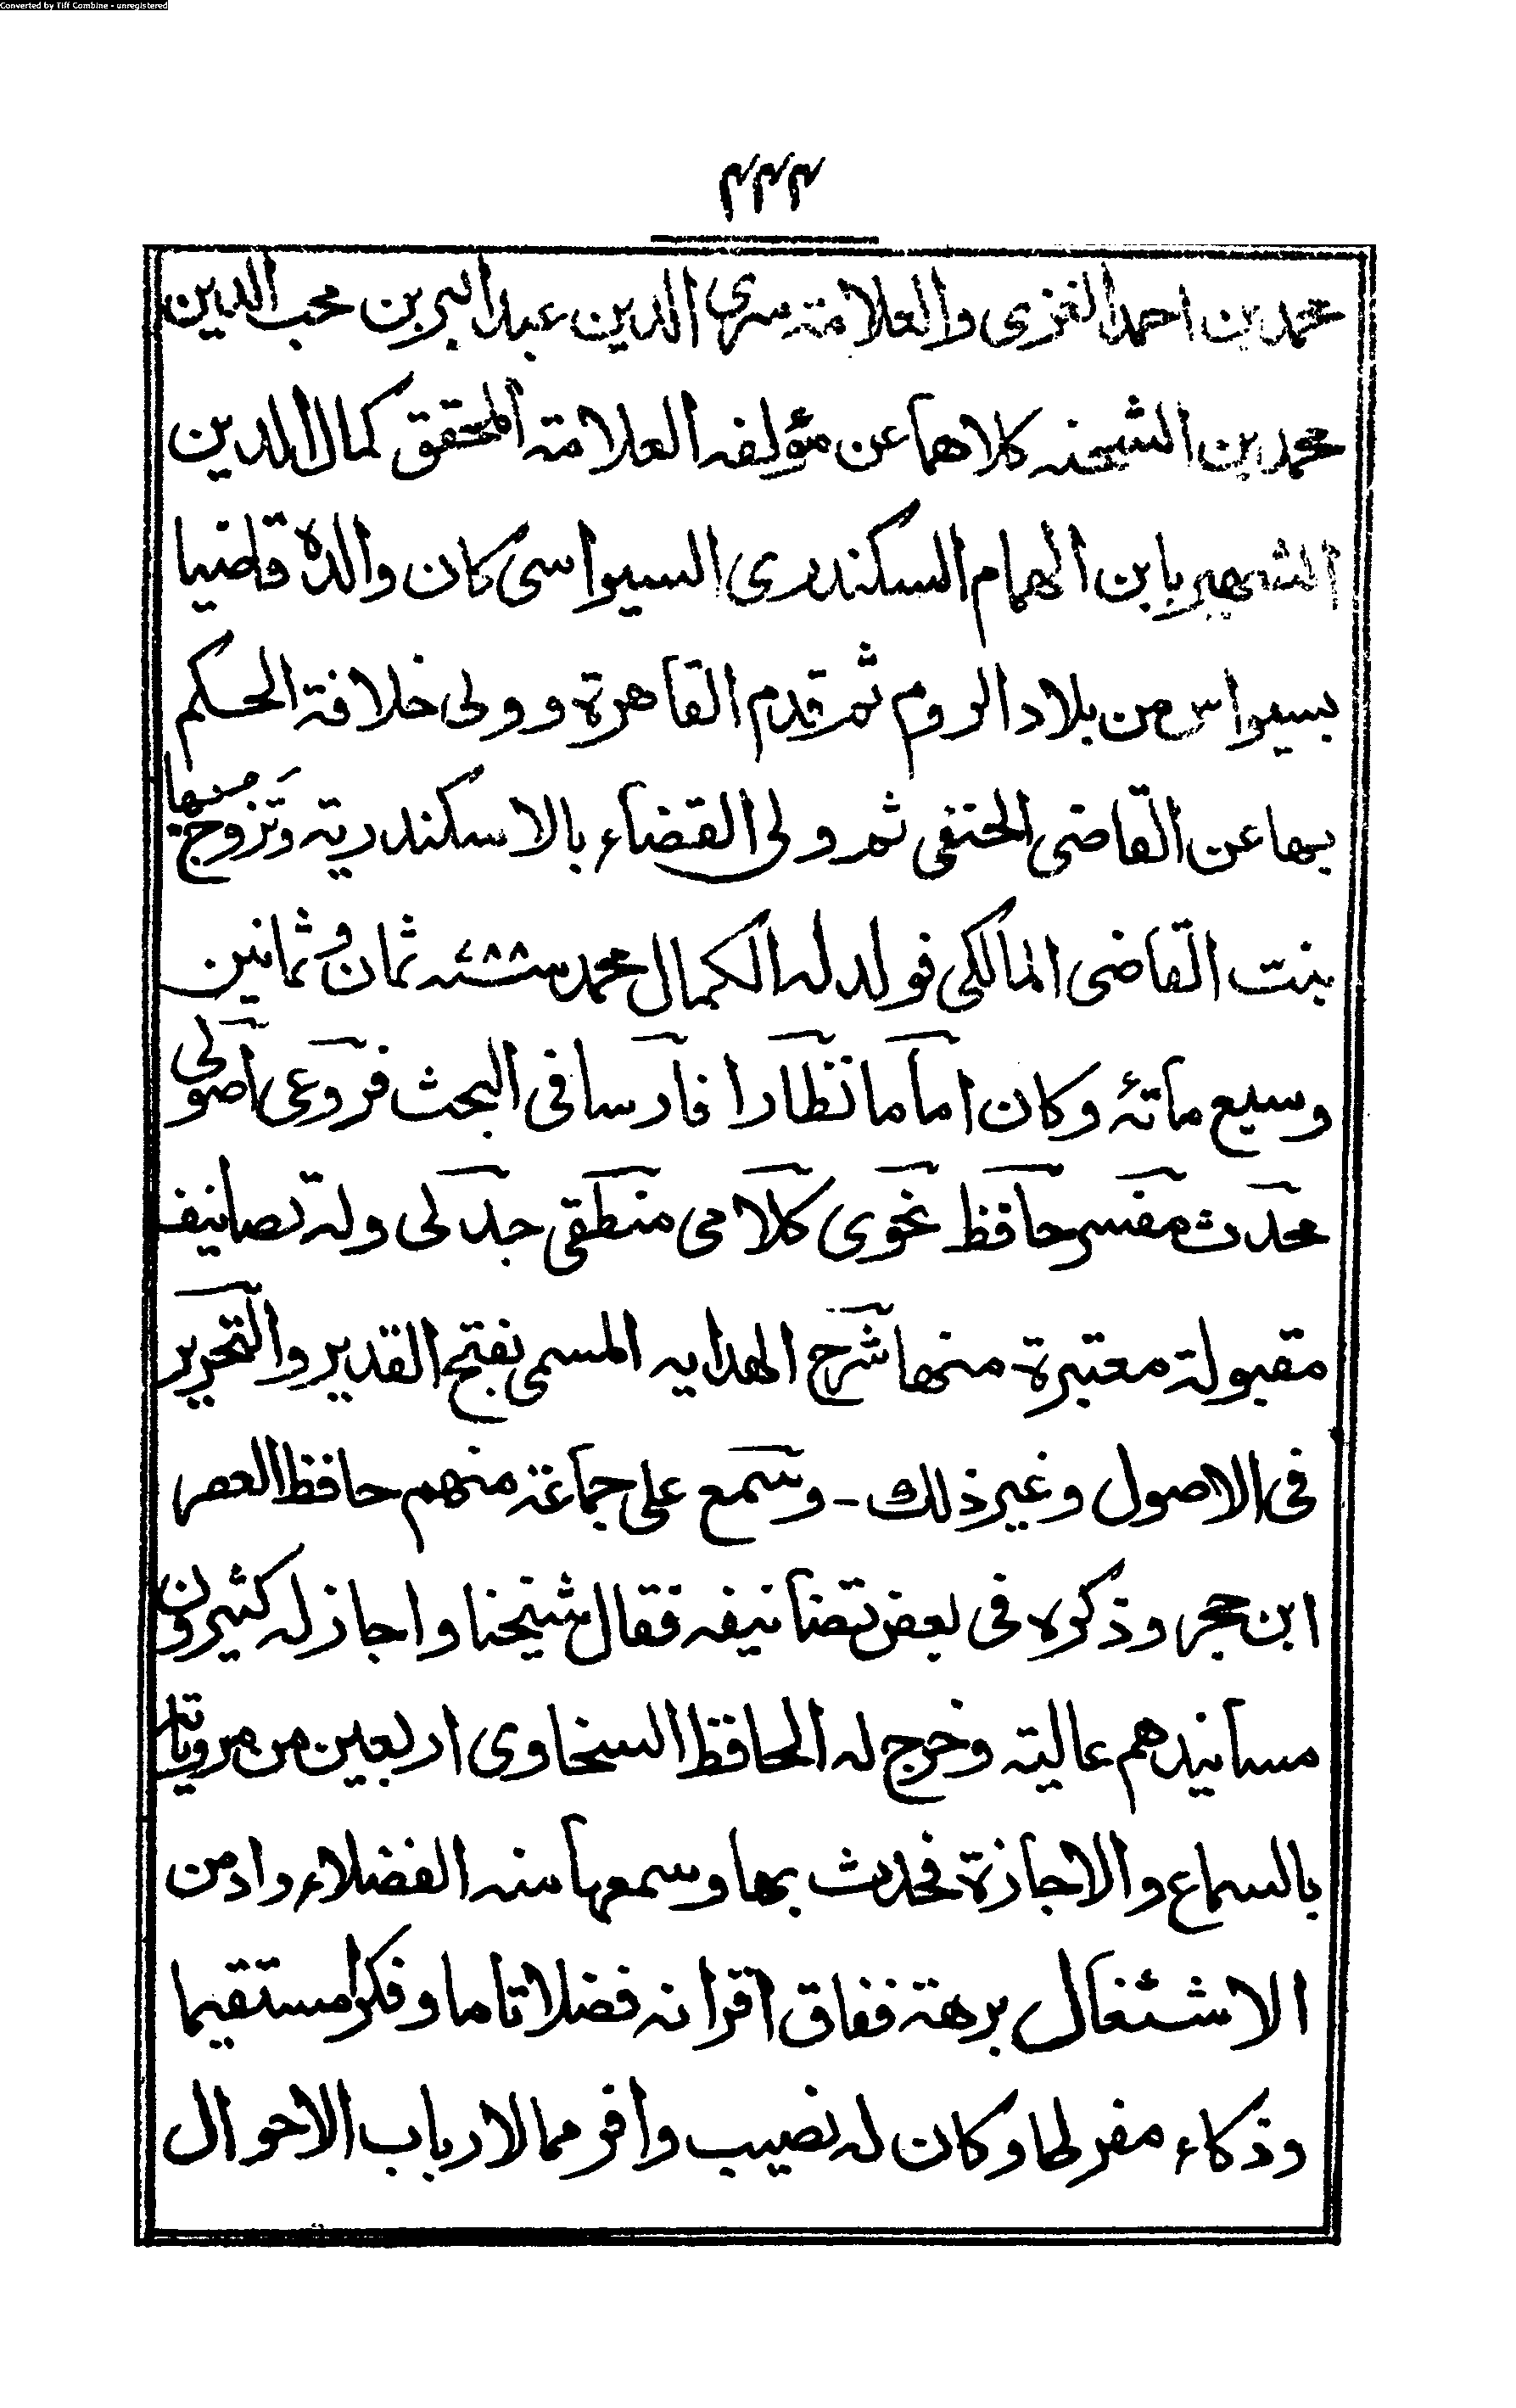 Converted by Tiff Combine - unregistered
۴۴۴
محمد بن احمد الغزى والعلامة سرى الدين عبد البر بن محب الدين
محمد بن الشحنه كلاهما عن مؤلفه العلامة المحقق كمال الدين
الشهير بابن الهمام السكندرى السيواسى كان والده قاضيا
بسيواس من بلاد الروم ثم قدم القاهرة وولى خلافة الحكم
بها عن القاضى الحنفى ثم ولى القضاء بالاسكندرية وتزوج بها
بنت القاضى المالكى فولد له الكمال محمد ثمان وثمانين
وسبع مائة وكان اماما نظارا فارسا فى البحث فروعى اصولى
محدث مفسر حافظ نحوى كلامى منطقى جدلى وله تصانيف
مقبولة معتبرة منها شرح الهدايه المسمى بفتح القدير والتحرير
فى الاصول وغير ذلك - وسمع على جماعة منهم حافظ العصر
ابن حجر وذكره فى بعض تصانيفه فقال شيخنا واجاز له كثيرون
مسانيدهم عالية وخرج له الحافظ السخاوى اربعين من مروياته
بالسماع والاجازة فحدث بها وسمعها منه الفضلاء وادمن
الاشتغال برهة ففاق اقرانه فضلا تاما وفكرا مستقيما
وذكاء مفرطا وكان له نصيب وافر مما لارباب الاحوال